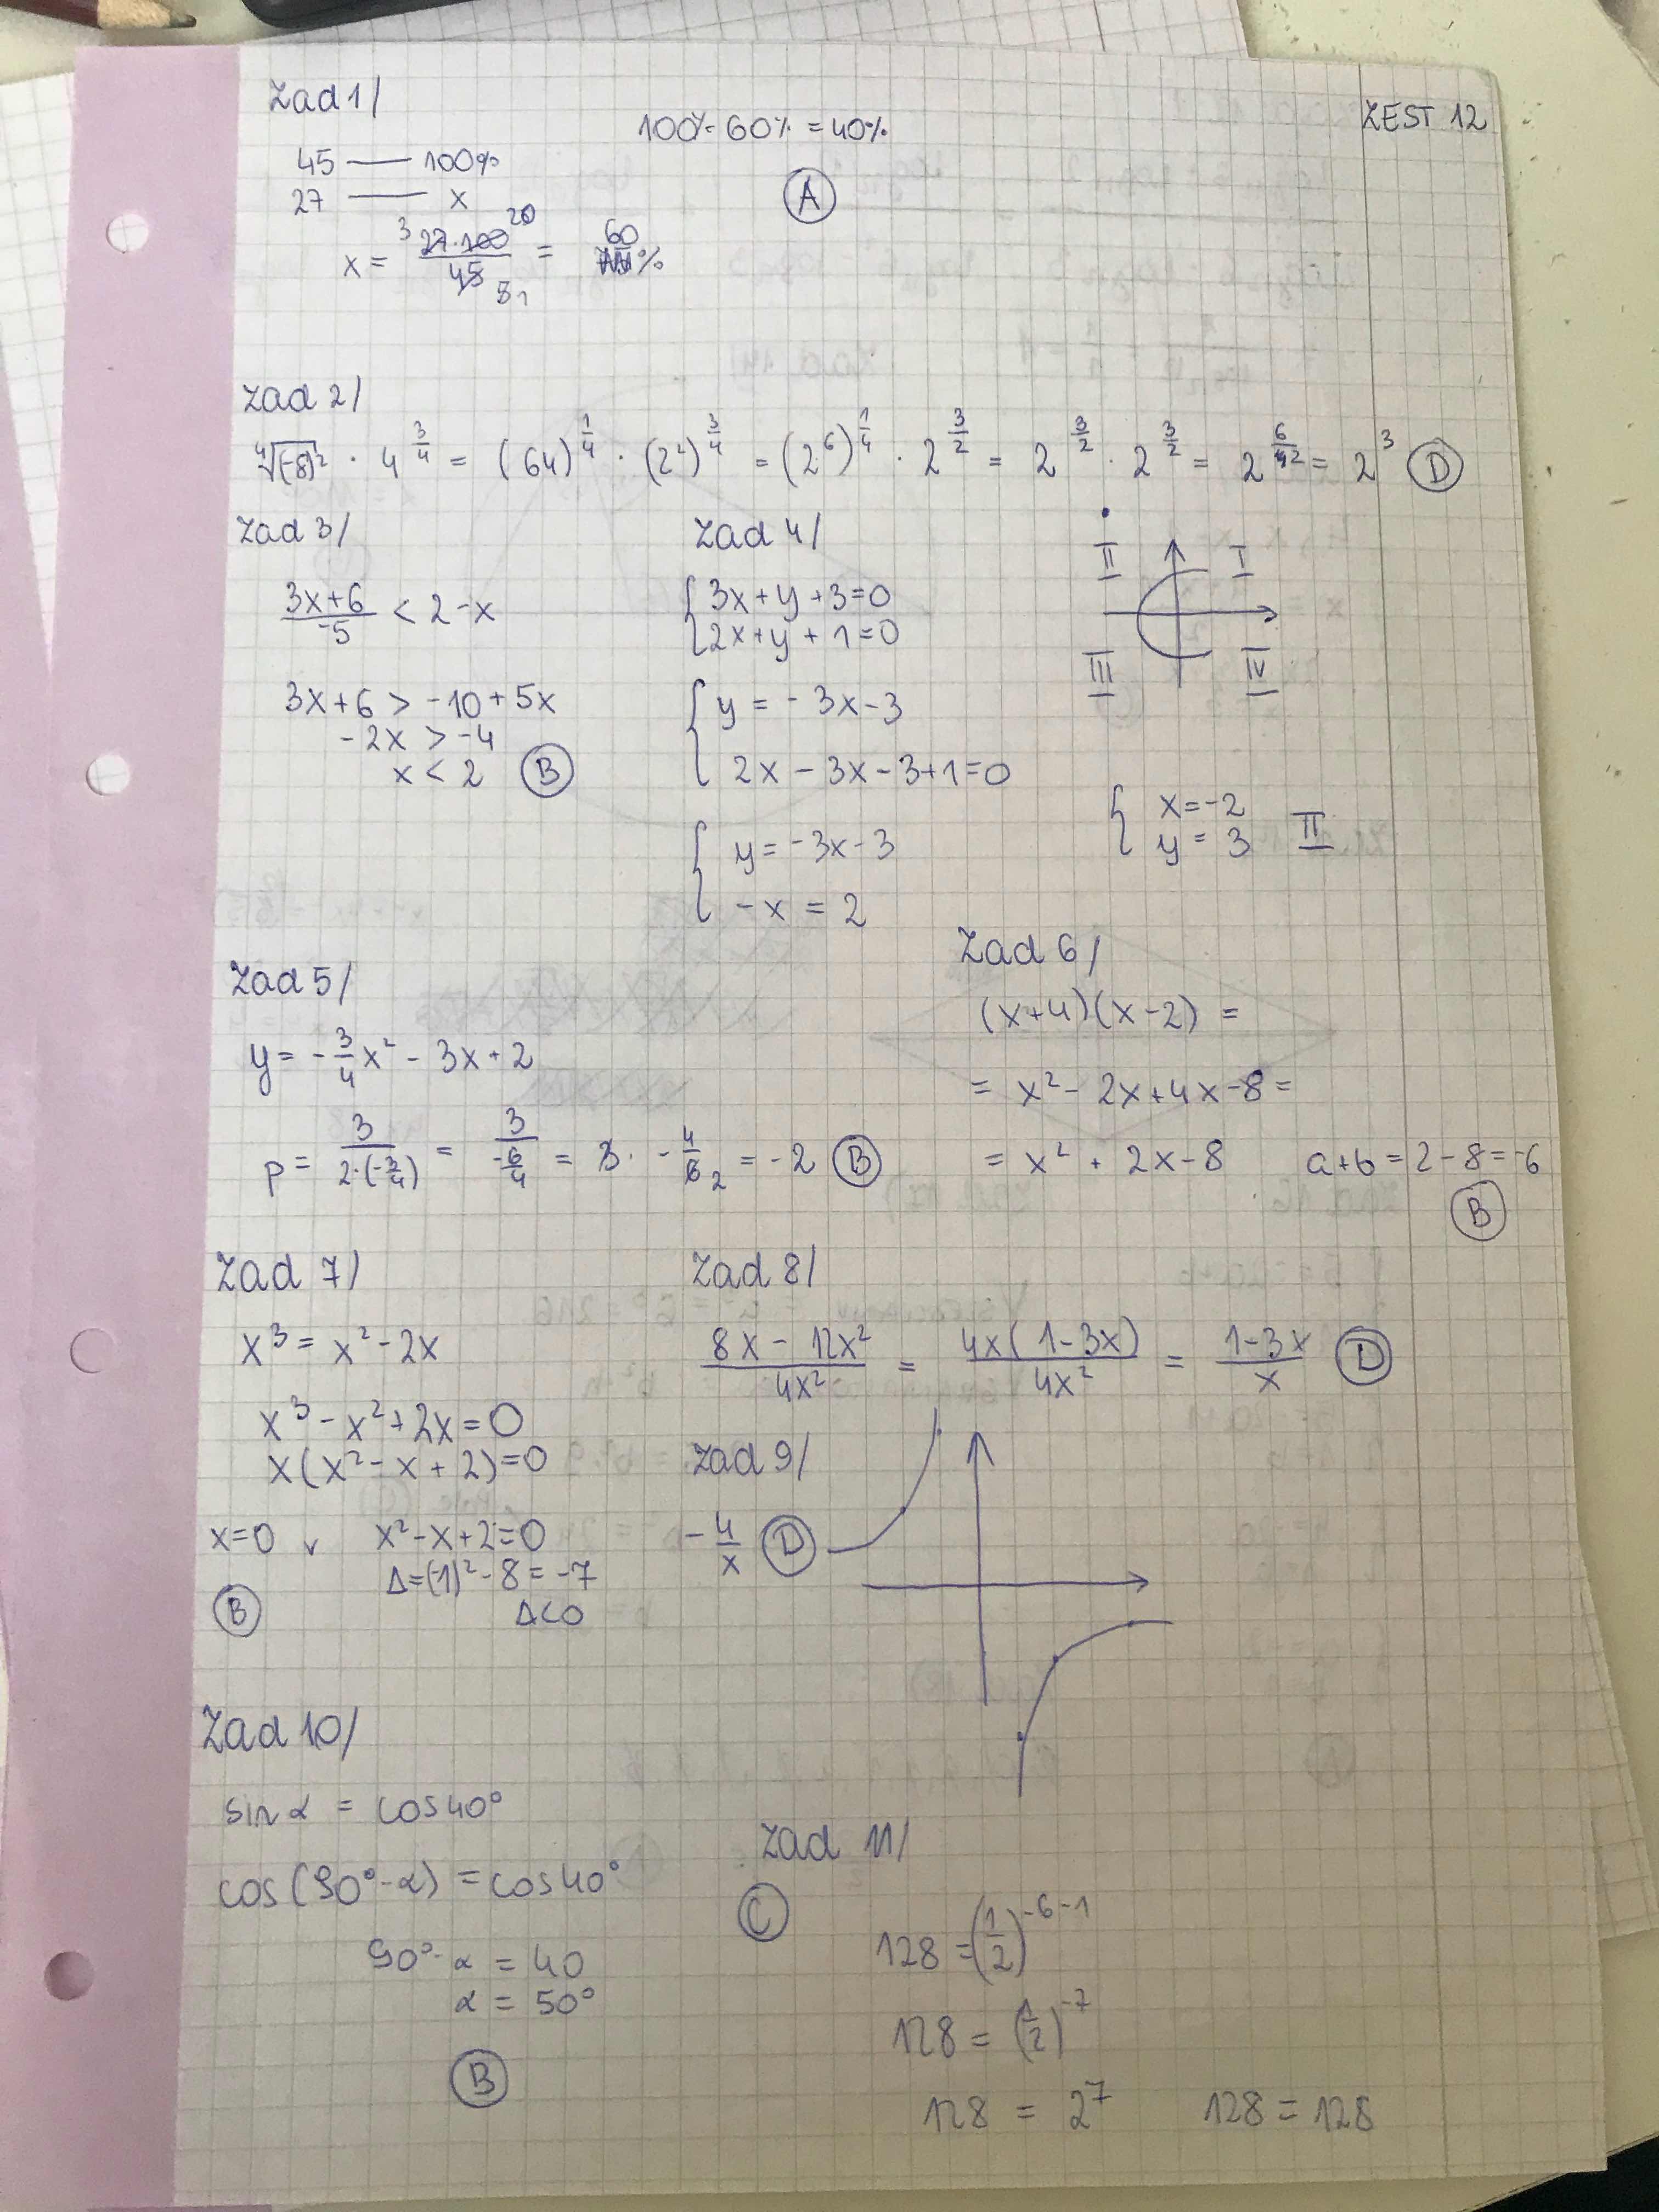 ZEST 12
Zad 1/
45 — 100%
27 — x
x = 3 27·100 20 / 45 5 1 = 60 %
100%-60% = 40%
A
Zad 2/
⁴√(-8)² · 4^(3/4) = (64)^(1/4) · (2²)^(3/4) = (2⁶)^(1/4) · 2^(3/2) = 2^(3/2) · 2^(3/2) = 2^(6/2) = 2³ D
Zad 3/
(3x+6)/-5 < 2-x
3x+6 > -10+5x
-2x > -4
x < 2 B
Zad 4/
{ 3x+y+3=0
{ 2x+y+1=0
{ y = -3x-3
{ 2x-3x-3+1=0
{ y = -3x-3
{ -x = 2
II I
III IV
{ x=-2
{ y = 3 II
Zad 5/
y = -3/4 x² - 3x + 2
p = 3/(2·(-3/4)) = 3/(-6/4) = 3 · -4/6 2 = -2 B
Zad 6/
(x+4)(x-2) =
= x² - 2x+4x-8 =
= x² + 2x-8 a+b = 2-8 = -6
B
Zad 7/
x³ = x² - 2x
x³ - x² + 2x = 0
x(x² - x + 2) = 0
x=0 v x² - x + 2 = 0
Δ=(-1)² - 8 = -7
Δ<0
B
Zad 8/
(8x - 12x²)/4x² = 4x(1-3x)/4x² = (1-3x)/x D
Zad 9/
-4/x D
Zad 10/
sin α = cos40°
cos(90°-α) = cos40°
90°-α = 40
α = 50°
B
Zad 11/
C
128 = (1/2)^(-6-1)
128 = (1/2)^(-7)
128 = 2⁷ 128 = 128